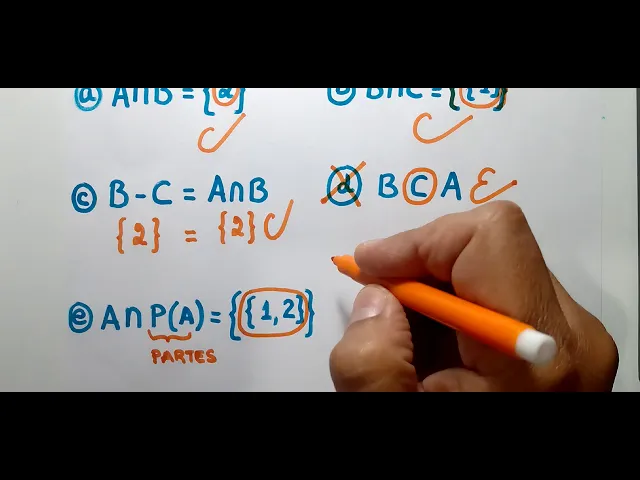 a A∩B = {2}
B∩C = {{1}}
c B - C = A∩B
{2} = {2}
d B ⊂ A
e A∩P(A) = {{1,2}}
PARTES